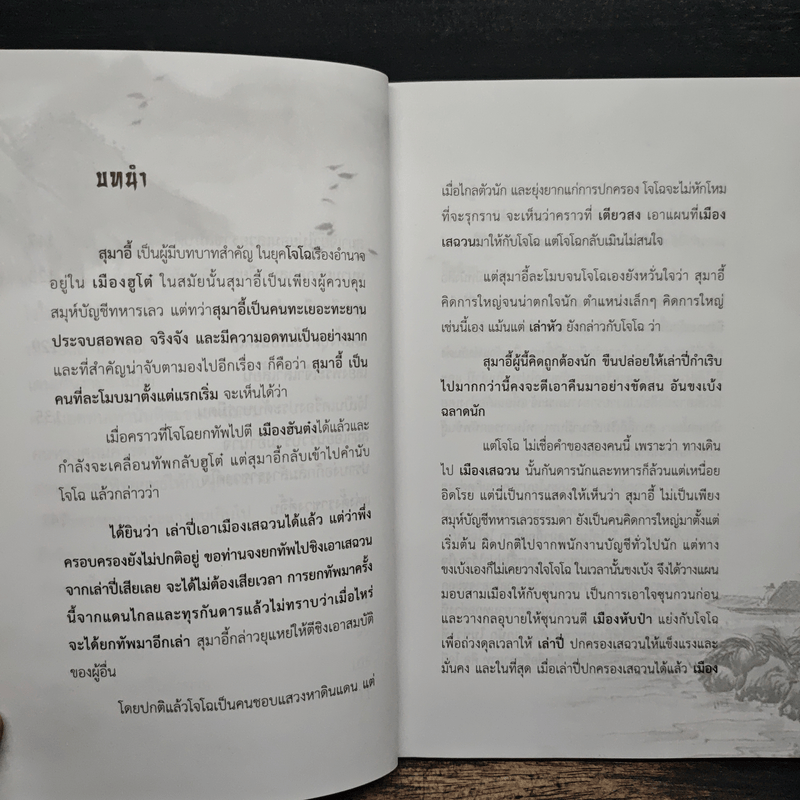 บทนำ
สุมาอี้ เป็นผู้มีบทบาทสำคัญ ในยุคโจโฉเรืองอำนาจ
อยู่ใน เมืองฮูโต๋ ในสมัยนั้นสุมาอี้เป็นเพียงผู้ควบคุม
สมุห์บัญชีทหารเลว แต่ทว่าสุมาอี้เป็นคนทะเยอะทะยาน
ประจบสอพลอ จริงจัง และมีความอดทนเป็นอย่างมาก
และที่สำคัญน่าจับตามองไปอีกเรื่อง ก็คือว่า สุมาอี้ เป็น
คนที่ละโมบมาตั้งแต่แรกเริ่ม จะเห็นได้ว่า
เมื่อคราวที่โจโฉยกทัพไปตี เมืองฮันต๋งได้แล้วและ
กำลังจะเคลื่อนทัพกลับฮูโต๋ แต่สุมาอี้กลับเข้าไปคำนับ
โจโฉ แล้วกล่าวว่า
ได้ยินว่า เล่าปี่เอาเมืองเสฉวนได้แล้ว แต่ว่าพึ่ง
ครอบครองยังไม่ปกติอยู่ ขอท่านจงยกทัพไปชิงเอาเสฉวน
จากเล่าปี่เสียเลย จะได้ไม่ต้องเสียเวลา การยกทัพมาครั้ง
นี้จากแดนไกลและทุรกันดารแล้วไม่ทราบว่าเมื่อไหร่
จะได้ยกทัพมาอีกเล่า สุมาอี้กล่าวยุแหย่ให้ตีชิงเอาสมบัติ
ของผู้อื่น
โดยปกติแล้วโจโฉเป็นคนชอบแสวงหาดินแดน แต่
เมื่อไกลตัวนัก และยุ่งยากแก่การปกครอง โจโฉจะไม่หักโหม
ที่จะรุกราน จะเห็นว่าคราวที่ เตียวสง เอาแผนที่เมือง
เสฉวนมาให้กับโจโฉ แต่โจโฉกลับเมินไม่สนใจ
แต่สุมาอี้ละโมบจนโจโฉเองยังหวั่นใจว่า สุมาอี้
คิดการใหญ่จนน่าตกใจนัก ตำแหน่งเล็กๆ คิดการใหญ่
เช่นนี้เอง แม้นแต่ เล่าหัว ยังกล่าวกับโจโฉ ว่า
สุมาอี้ผู้นี้คิดถูกต้องนัก ขืนปล่อยให้เล่าปี่กำเริบ
ไปมากกว่านี้คงจะตีเอาคืนมาอย่างขัดสน อันขงเบ้ง
ฉลาดนัก
แต่โจโฉ ไม่เชื่อคำของสองคนนี้ เพราะว่า ทางเดิน
ไป เมืองเสฉวน นั้นกันดารนักและทหารก็ล้วนแต่เหนื่อย
อิดโรย แต่นี่เป็นการแสดงให้เห็นว่า สุมาอี้ ไม่เป็นเพียง
สมุห์บัญชีทหารเลวธรรมดา ยังเป็นคนคิดการใหญ่มาตั้งแต่
เริ่มต้น ผิดปกติไปจากพนักงานบัญชีทั่วไปนัก แต่ทาง
ขงเบ้งเองก็ไม่เคยวางใจโจโฉ ในเวลานั้นขงเบ้ง จึงได้วางแผน
มอบสามเมืองให้กับซุนกวน เป็นการเอาใจซุนกวนก่อน
และวางกลอุบายให้ซุนกวนตี เมืองหับป๋า แย่งกับโจโฉ
เพื่อถ่วงดุลเวลาให้ เล่าปี่ ปกครองเสฉวนให้แข็งแรงและ
มั่นคง และในที่สุด เมื่อเล่าปี่ปกครองเสฉวนได้แล้ว เมือง